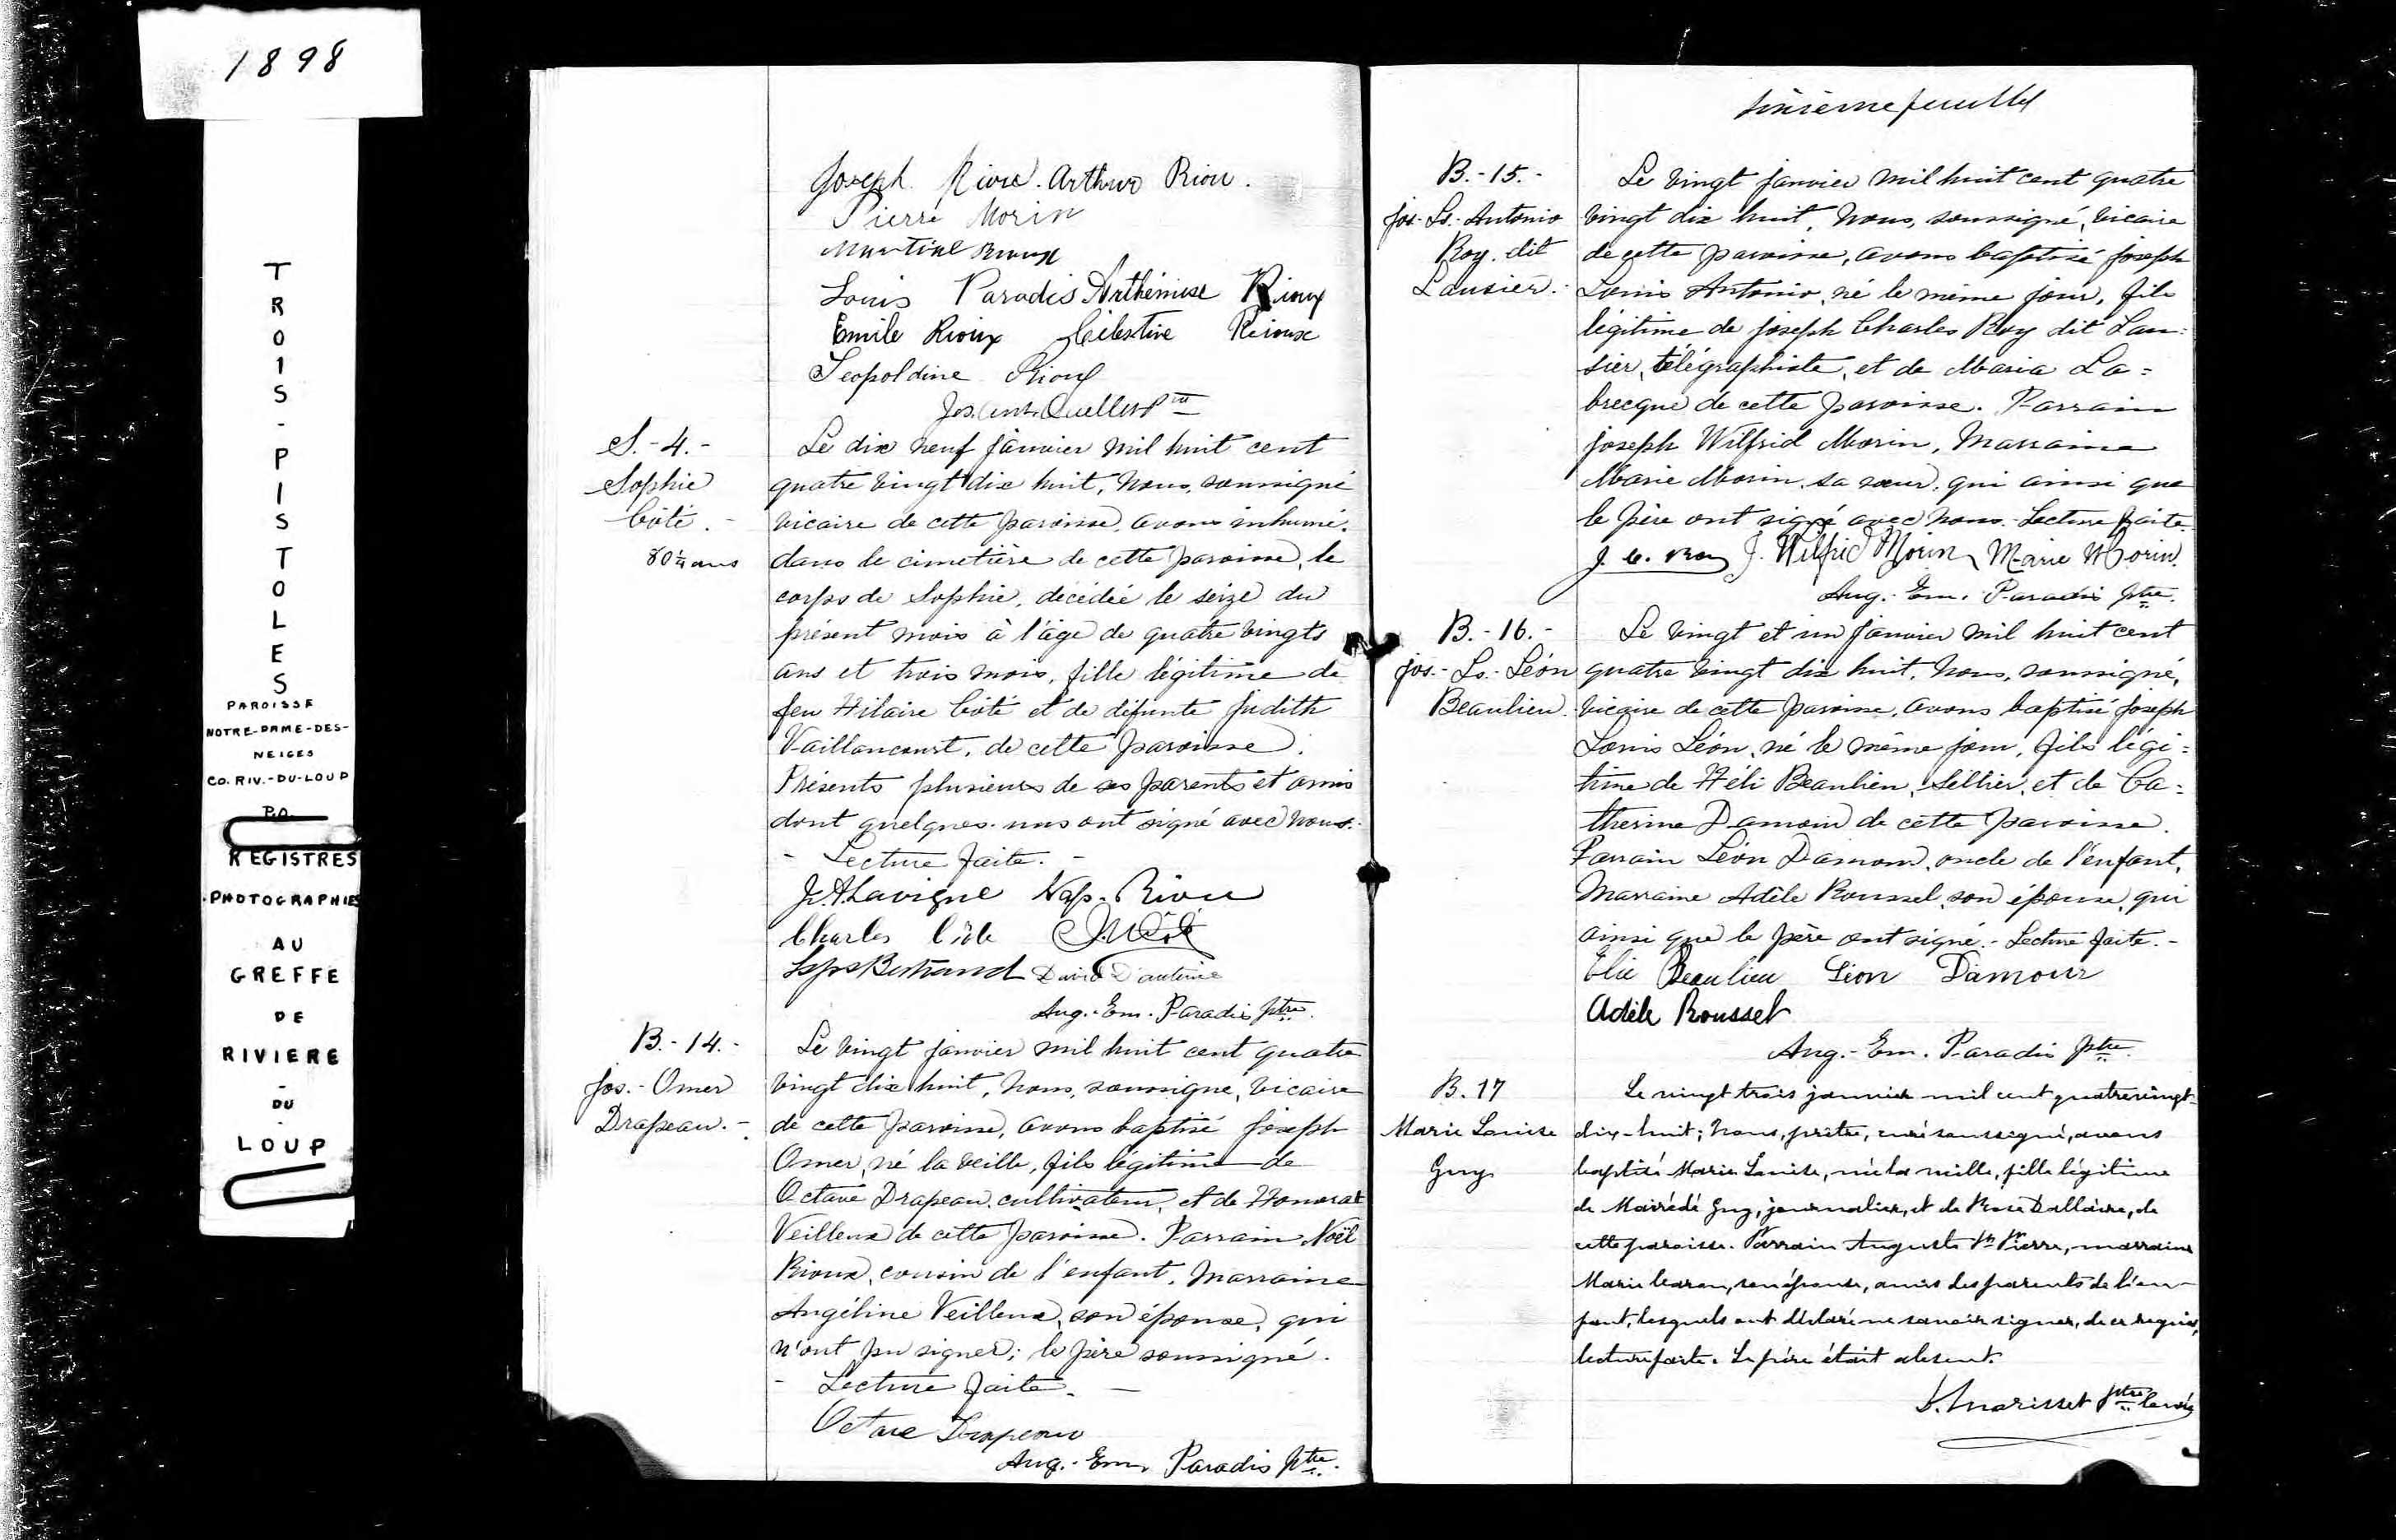 1898
TROIS-PISTOLES
PAROISSE
NOTRE-DAME-DES-
NEIGES
CO. RIV.-DU-LOUP
P.Q.
REGISTRES
PHOTOGRAPHIES
AU
GREFFE
DE
RIVIERE
-
DU
-
LOUP
Joseph Rioux. Arthur Riou.
Pierre Morin
Martial Rioux
Louis Paradis Arthémise Rioux
Emile Rioux Célestine Rioux
Leopoldine Rioux
Ptre
S.-4.-
Sophie
Côté.-
80 1/4 ans
Le dix neuf janvier mil huit cent
quatre vingt dix huit, Nous, soussigné
vicaire de cette paroisse, avons inhumé,
dans le cimetière de cette paroisse, le
corps de Sophie, décédée le seize du
présent mois à l'âge de quatre vingts
ans et trois mois, fille légitime de
feu Hilaire Côté et de défunte Judith
Vaillancourt, de cette paroisse.
Présents plusieurs de ses parents et amis
dont quelques-uns ont signé avec nous.-
- Lecture faite. -
J. A. Lavigne Nap. Riou
Charles Côté
Bertrand David D'auteuil
Aug.-Em. Paradis Ptre.
B.-14.-
Jos.-Omer
Drapeau.-
Le vingt janvier mil huit cent quatre
vingt dix huit, Nous, soussigné, vicaire
de cette paroisse, avons baptisé Joseph
Omer, né la veille, fils légitime de
Octave Drapeau, cultivateur, et de Honorat
Veilleux de cette paroisse. Parrain Noël
Rioux, cousin de l'enfant, Marraine
Angéline Veilleux, son épouse, qui
n'ont pu signer; le père soussigné.
- Lecture faite. -
Octave Drapeau
Aug.-Em. Paradis Ptre.
sixième feuillet
B.-15.-
Jos.-Ls.-Antonio
Roy. dit
Lausier.-
Le vingt janvier mil huit cent quatre
vingt dix huit, Nous, soussigné, vicaire
de cette paroisse, avons baptisé Joseph
Louis Antonio, né le même jour, fils
légitime de Joseph Charles Roy dit Lau=
sier, télégraphiste, et de Maria La=
brecque de cette paroisse. Parrain
Joseph Wilfrid Morin, Marraine
Marie Morin, sa sœur, qui ainsi que
le père ont signé avec nous. Lecture faite.
J. C. Roy J. Wilfrid Morin Marie Morin.
Aug.-Em. Paradis Ptre.
B.-16.-
Jos.-Ls.-Léon
Beaulieu.
Le vingt et un janvier mil huit cent
quatre vingt dix huit, Nous, soussigné,
vicaire de cette paroisse, avons baptisé Joseph
Louis Léon, né le même jour, fils légi=
time de Héli Beaulieu, sellier, et de Ca=
therine Damour de cette paroisse.
Parrain Léon Damour, oncle de l'enfant,
Marraine Adèle Roussel, son épouse, qui
ainsi que le père ont signé.- Lecture faite.-
Elie Beaulieu Léon D'amour
Adèle Roussel
Aug.-Em. Paradis Ptre.
B. 17
Marie Louise
Guy
Le vingt trois janvier mil cent quatre vingt-
dix-huit; Nous, prêtre, curé soussigné, avons
baptisé Marie Louise, née la veille, fille légitime
de Guy, journalier, et de Rose Dallaire, de
cette paroisse. Parrain Auguste St Pierre, marraine
Marie Caron, son épouse, amis des parents de l'en-
fant, lesquels ont déclaré ne savoir signer, de ce requis,
lecture faite. Le père était absent.
D. Morisset Ptre Curé